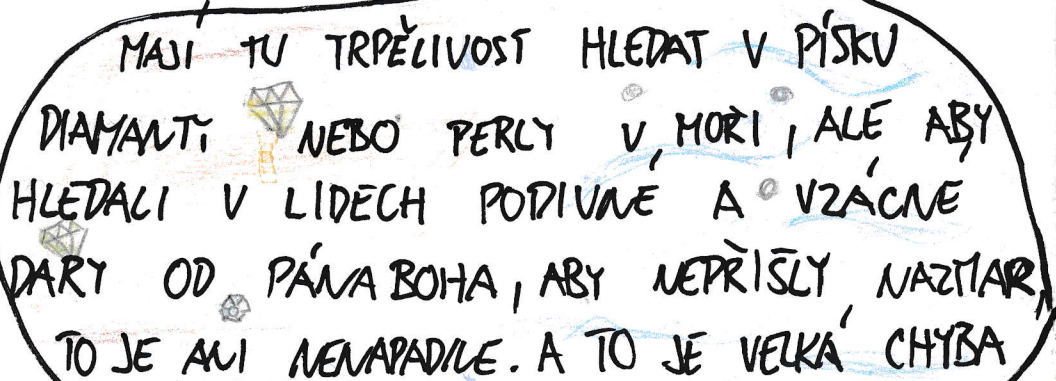 MAJÍ TU TRPĚLIVOST HLEDAT V PÍSKU
DIAMANTY NEBO PERLY V MOŘI, ALE ABY
HLEDALI V LIDECH PODIVNÉ A VZÁCNÉ
DARY OD PÁNA BOHA, ABY NEPŘIŠLY NAZMAR,
TO JE ANI NENAPADNE. A TO JE VELKÁ CHYBA